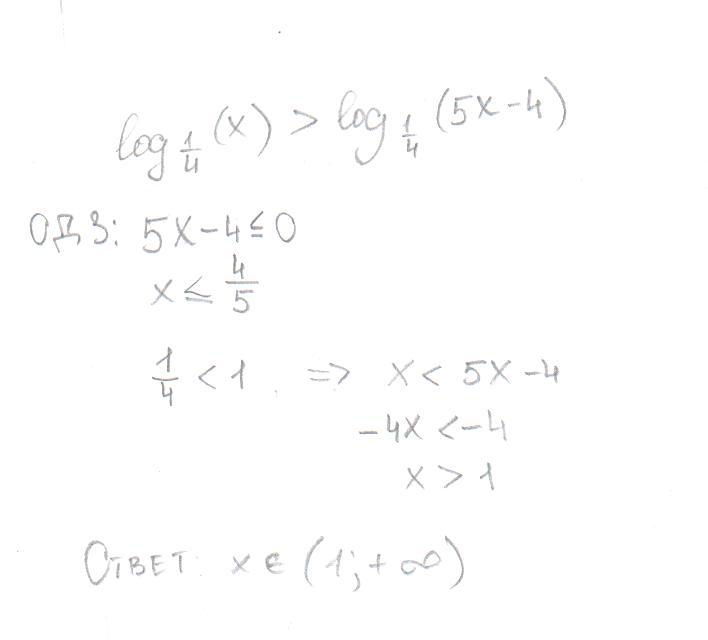 log 1/4 (x) > log 1/4 (5x-4)
ОДЗ: 5x-4≤0
x ≤ 4/5
1/4 < 1 => x < 5x-4
-4x <-4
x > 1
Ответ: x ∈ (1;+∞)